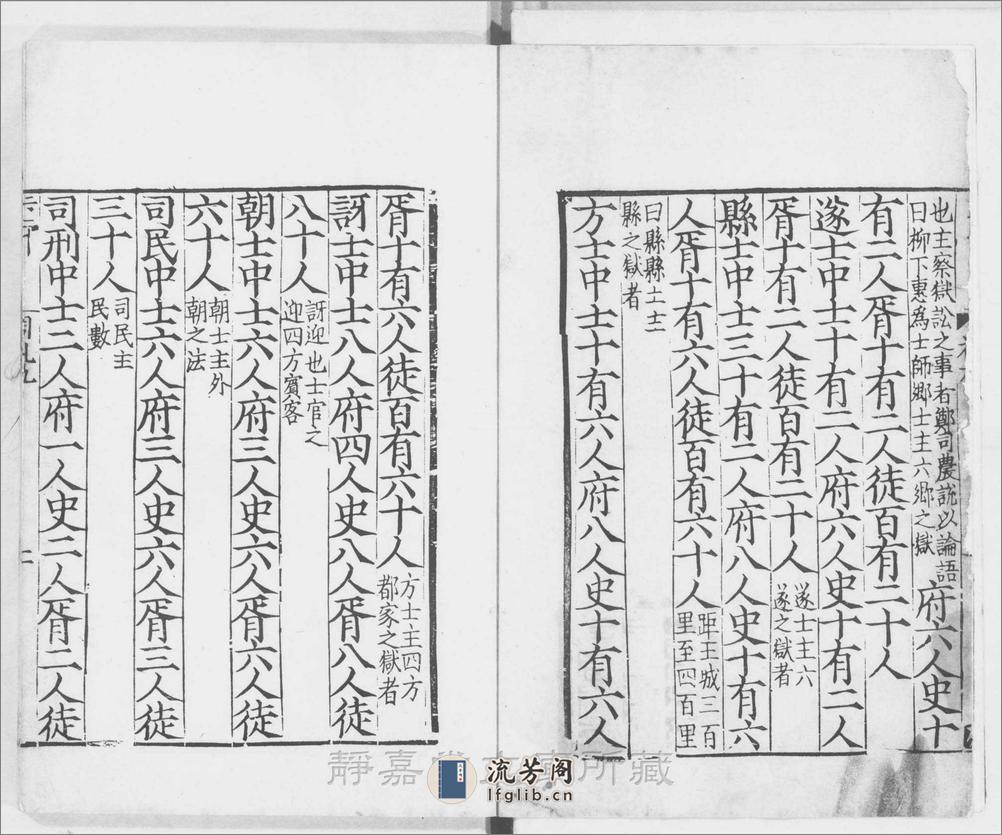 也主察獄訟之事者鄭司農說以論語
曰柳下惠為士師鄉士主六鄉之獄
府六人史十
有二人胥十有二人徒百有二十人
遂士中士十有二人府六人史十有二人
胥十有二人徒百有二十人
遂士主六
遂之獄者
縣士中士三十有二人府八人史十有六
人胥十有六人徒百有六十人
距王城三百
里至四百里
曰縣縣士主
縣之獄者
方士中士十有六人府八人史十有六人
胥十有六人徒百有六十人
方士主四方
都家之獄者
訝士中士八人府四人史八人胥八人徒
八十人
訝迎也士官之
迎四方賓客
朝士中士六人府三人史六人胥六人徒
六十人
朝士主外
朝之法
司民中士六人府三人史六人胥三人徒
三十人
司民主
民數
司刑中士二人府一人史二人胥二人徒
靜嘉堂文庫所藏
流芳阁
lfglib.cn